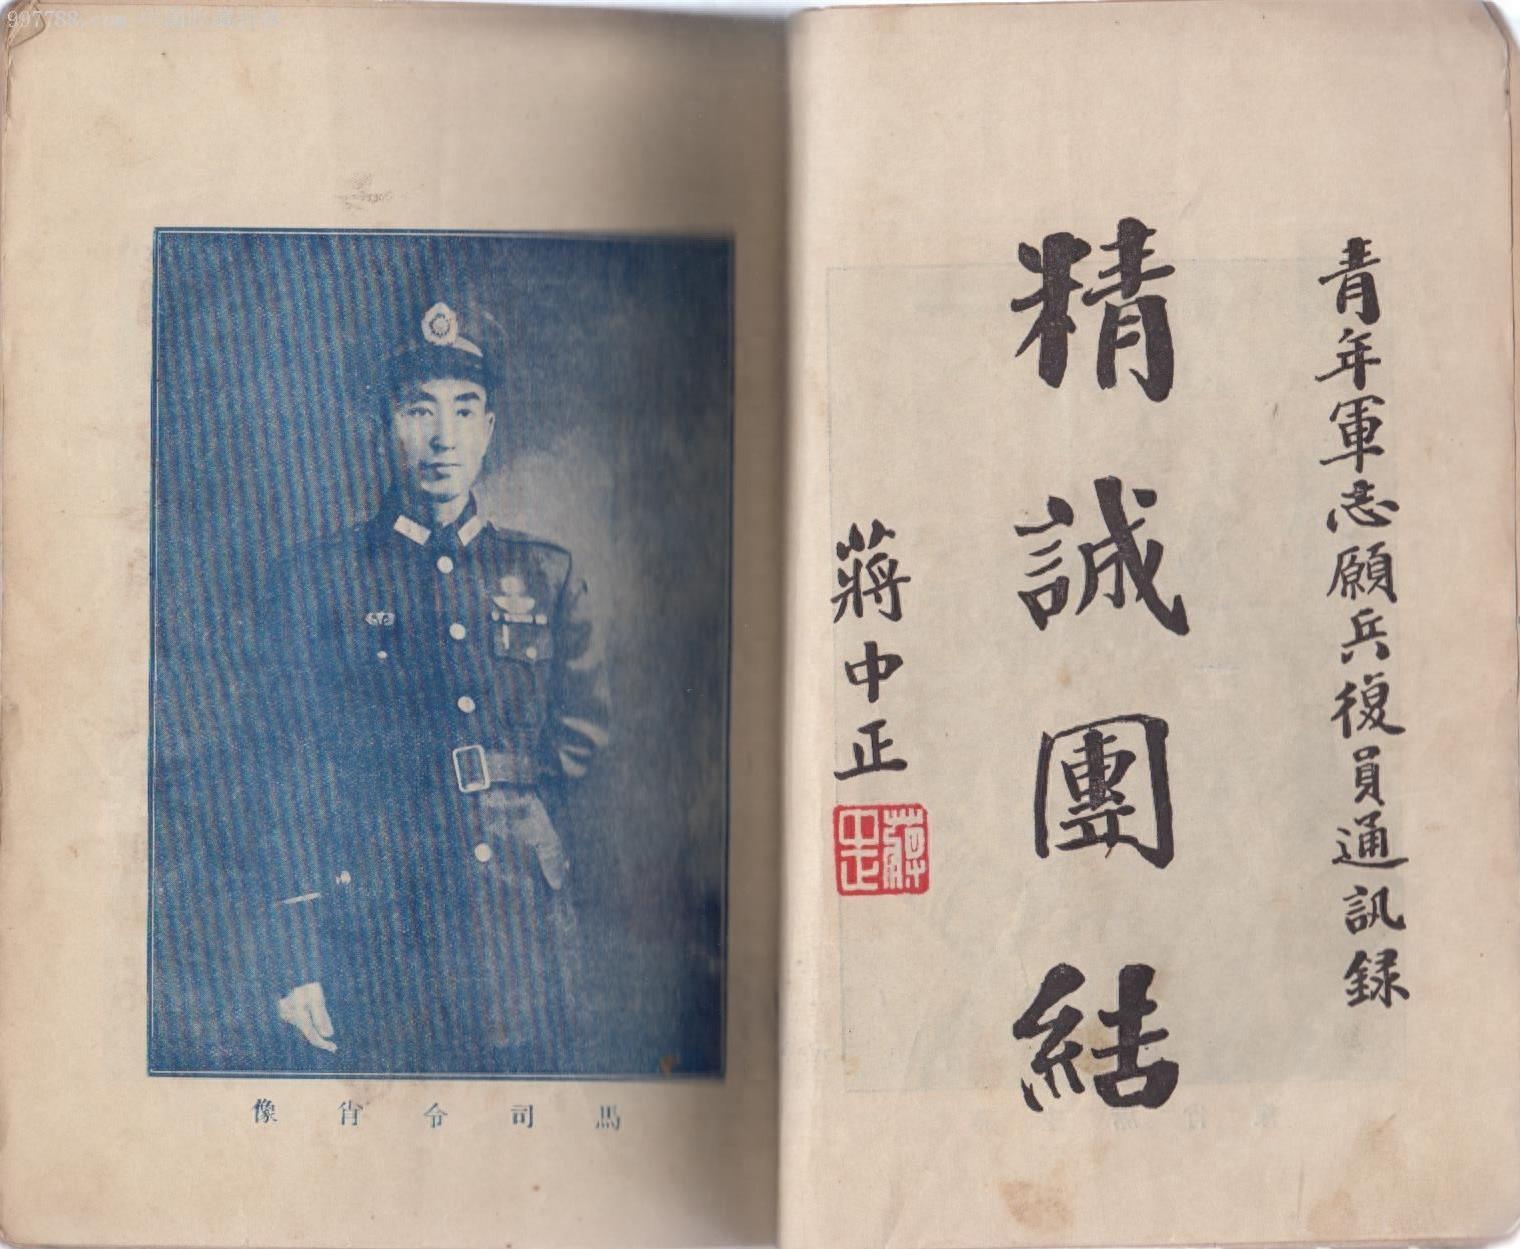 青年軍志願兵復員通訊錄
精誠團結
蔣中正
蔣中正
馬司令肖像
997788.com